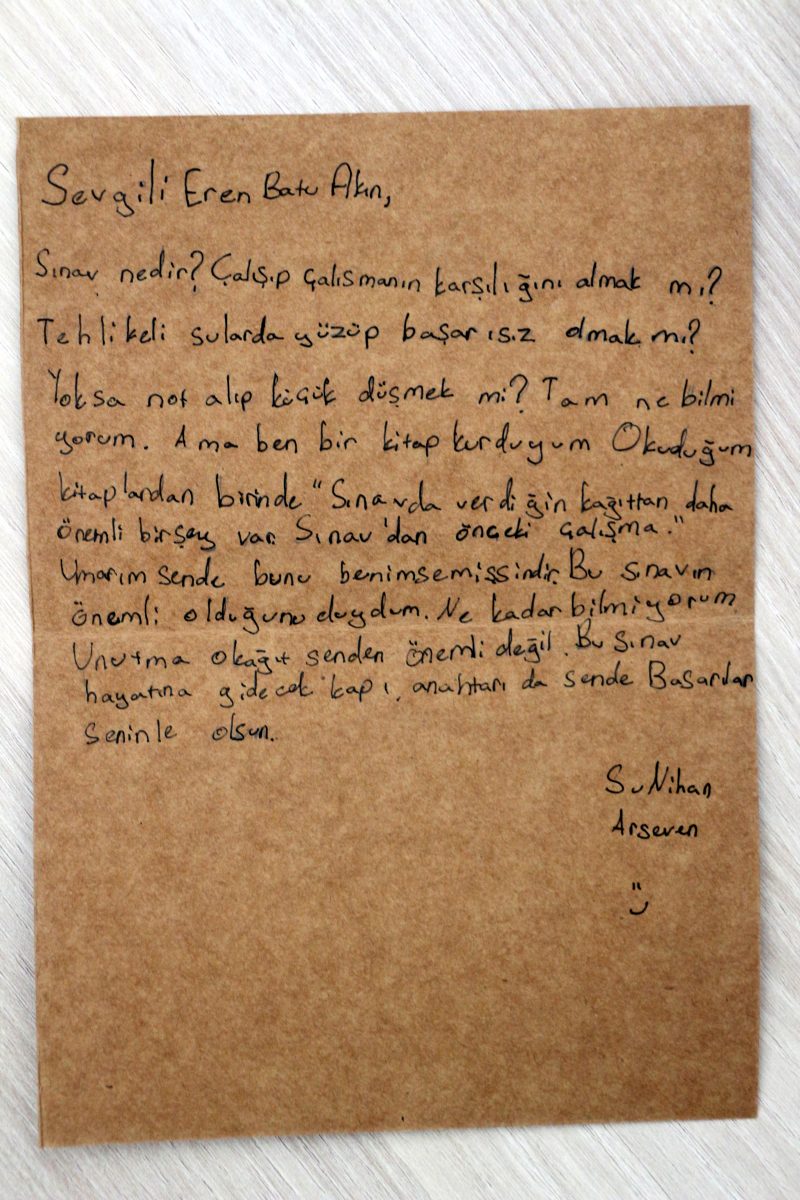 Sevgili Eren Batu Akın,
Sınav nedir? Çalışıp çalısmanın karşılığını almak mı?
Tehlikeli sularda yüzüp başarısız olmak mı?
Yoksa not alıp küçük düşmek mi? Tam ne bilmi
yorum. Ama ben bir kitap kurduyum Okuduğum
kitaplardan birinde "Sınavda verdiğin kağıttan daha
önemli birşey var. Sınav'dan önceki çalışma."
Umarım sende bunu benimsemişsindir. Bu sınavın
önemli olduğunu duydum. Ne kadar bilmiyorum
Unutma o kağıt senden önemli değil. Bu sınav
hayatına gidecek kapı, anahtarı da sende Basarılar
Seninle olsun.
Su Nihan
Arseven